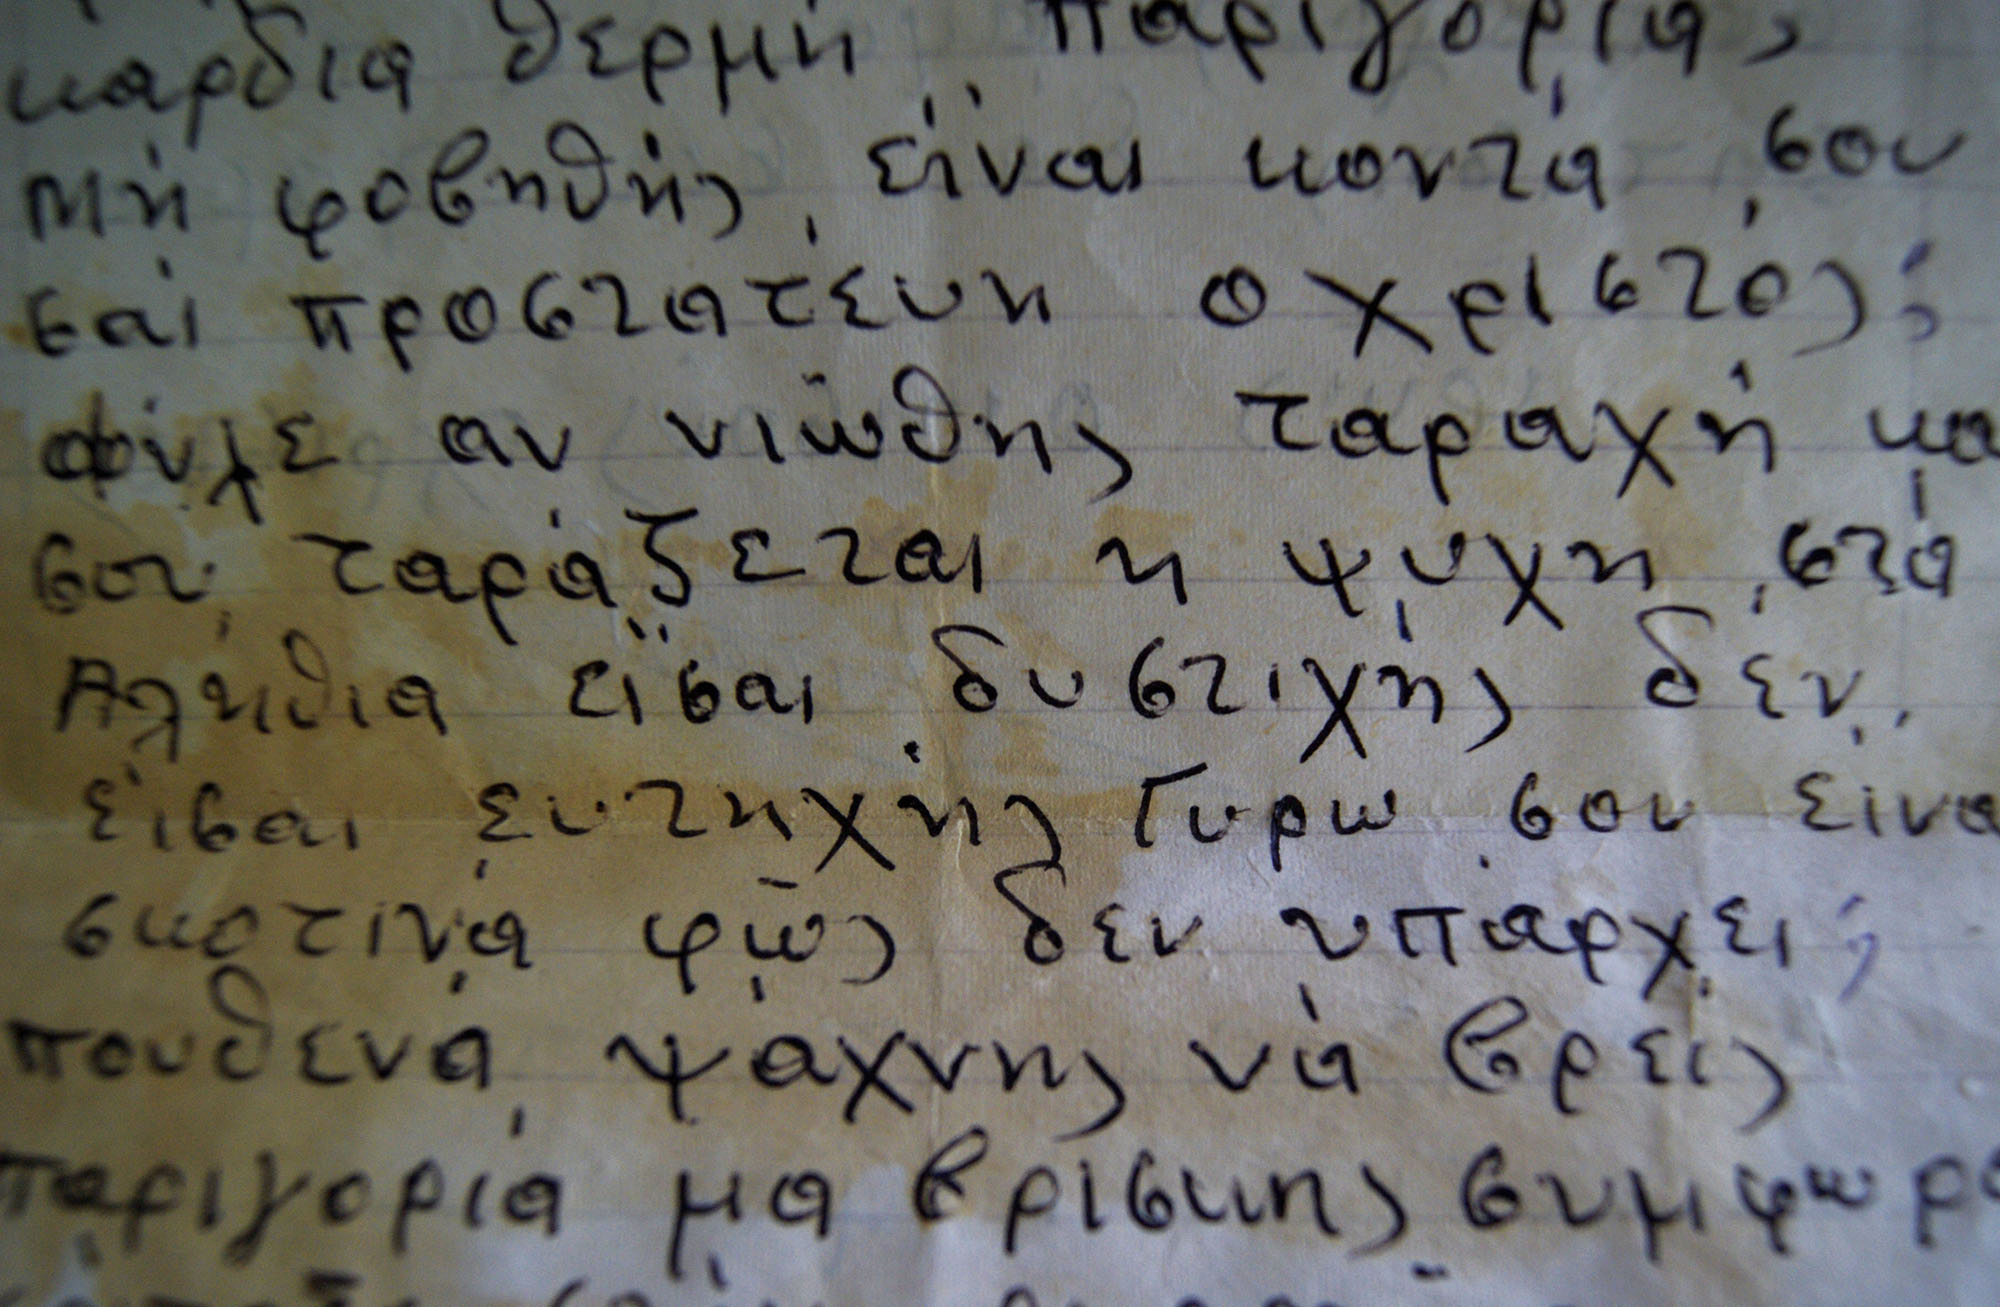 καρδια θερμή παριγορια,
Μή φοβηθής, είναι κοντά σου
σαί προστατέυη ο χριστός;
φύλε αν νιώθης ταραχή κα
σου ταράζεται η ψυχη στά
Αλήθια είσαι δυστιχής δέν
είσαι ευτηχής Γυρω σου είνα
σκοτινά φώς δεν υπάρχει;
πουθενά ψαχνης νά βρείς
παριγοριά μα βρίσκης συμφωρ